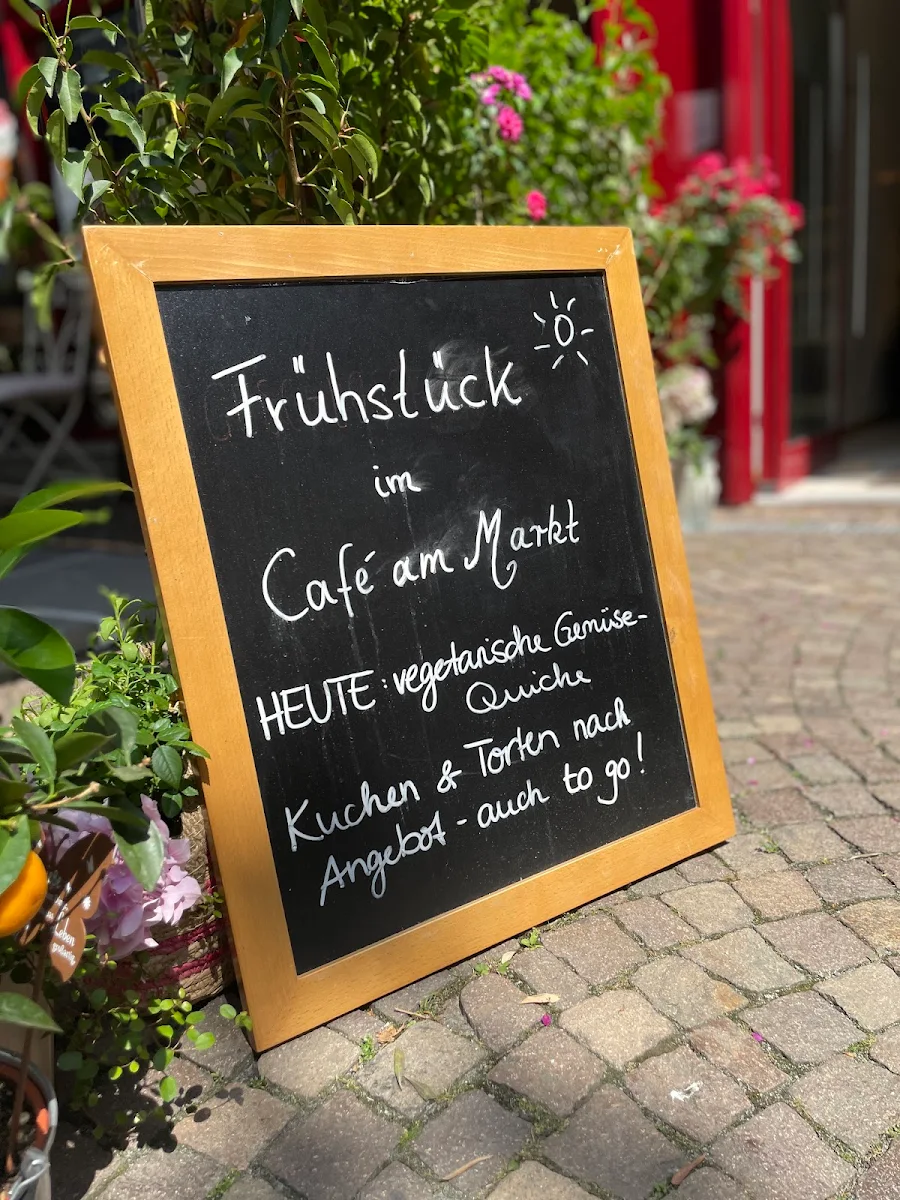 Frühstück
im
Café am Markt
HEUTE: vegetarische Gemüse-
Quiche
Kuchen & Torten nach
Angebot - auch to go!
Leben